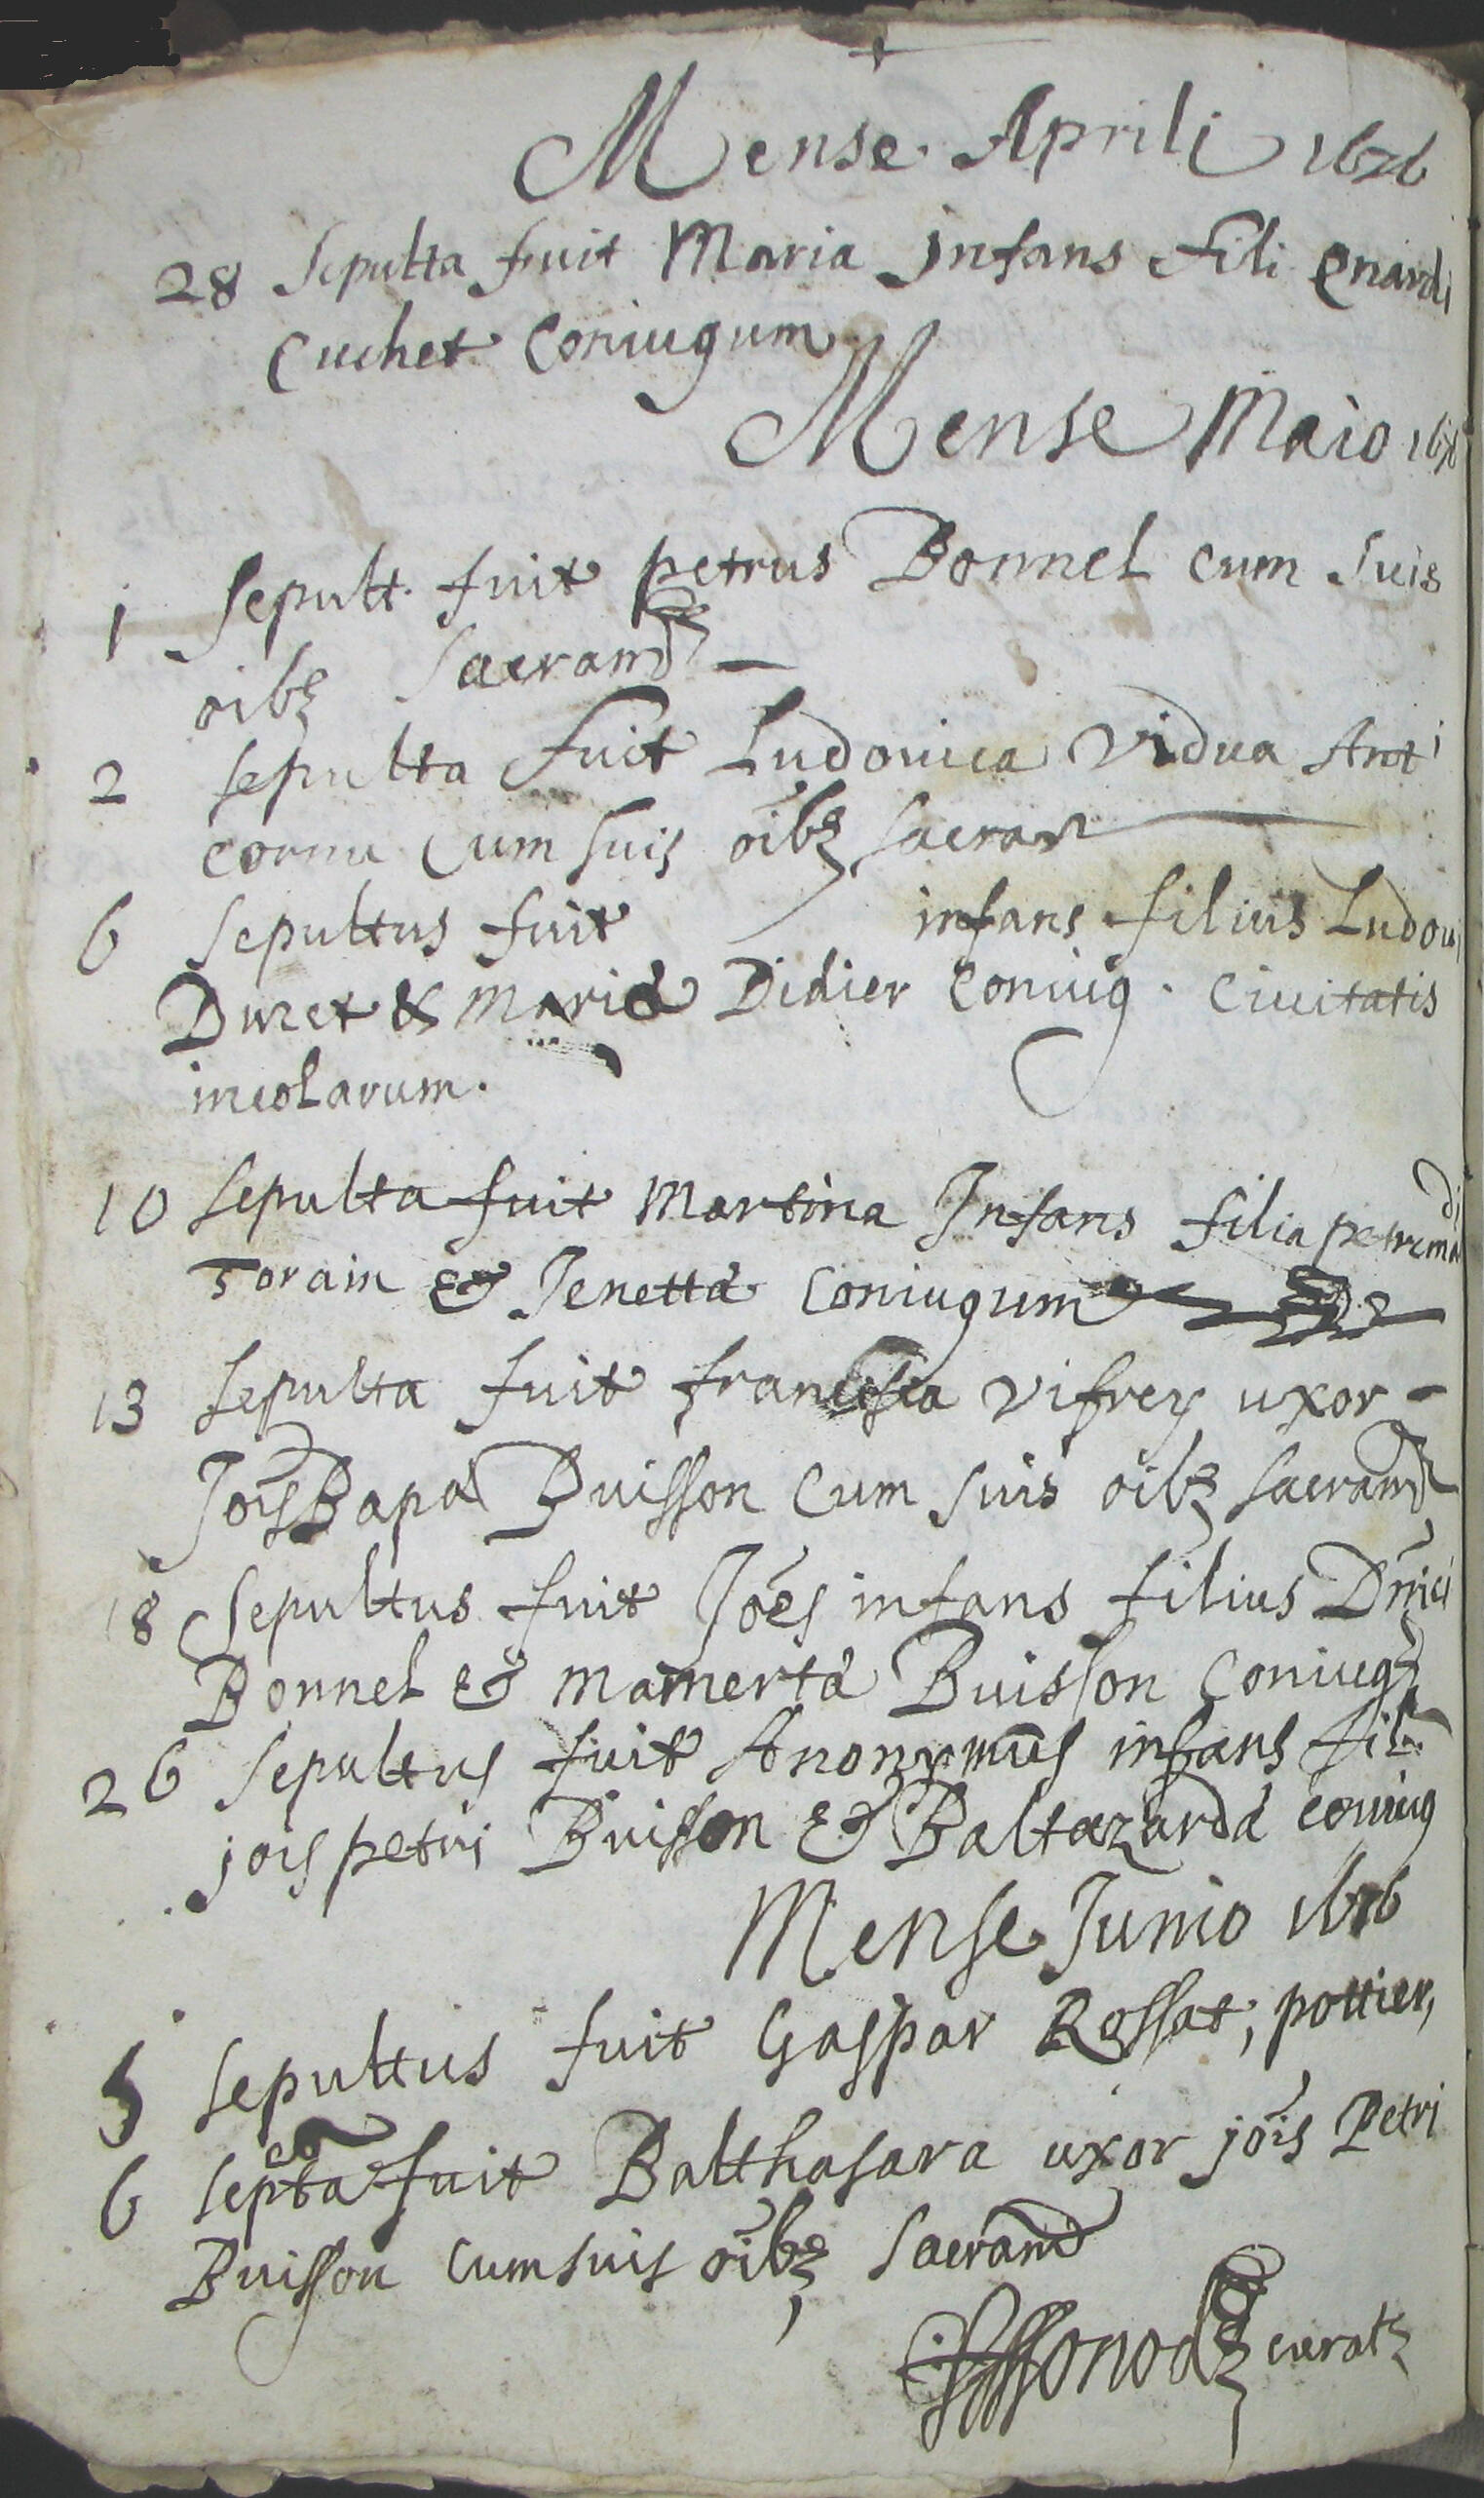 Mense Aprili 1626
28 Sepulta fuit Maria Infans fili Enardi
Cuchet Coniugum
Mense Maio
1 Sepult. fuit petrus Bonnel cum suis
oibz Sacram
2 sepulta fuit Ludovica vidua Anti
cornu cum suis oibz sacram
6 sepultus fuit infans filius Ludovi
Duret & Maria Didier Coniug. Civitatis
incolarum.
10 sepulta fuit Martina Infans filia petremandi
Torain & Jenetta Coniugum
13 sepulta fuit francisca vifrey uxor -
Jois Bapa Buisson cum suis oibz sacram
18 Sepultus fuit Joes infans filius Dnici
Bonnel & mamerta Buisson Coniug
26 sepultus fuit Anonymus infans fil
jois petri Buisson & Baltazarda coniug
Mense Junio 1626
5 sepultus fuit Gaspar Rossat, pottier,
6 septa fuit Balthasara uxor jois Petri
Buisson cum suis oibz sacram
curatz